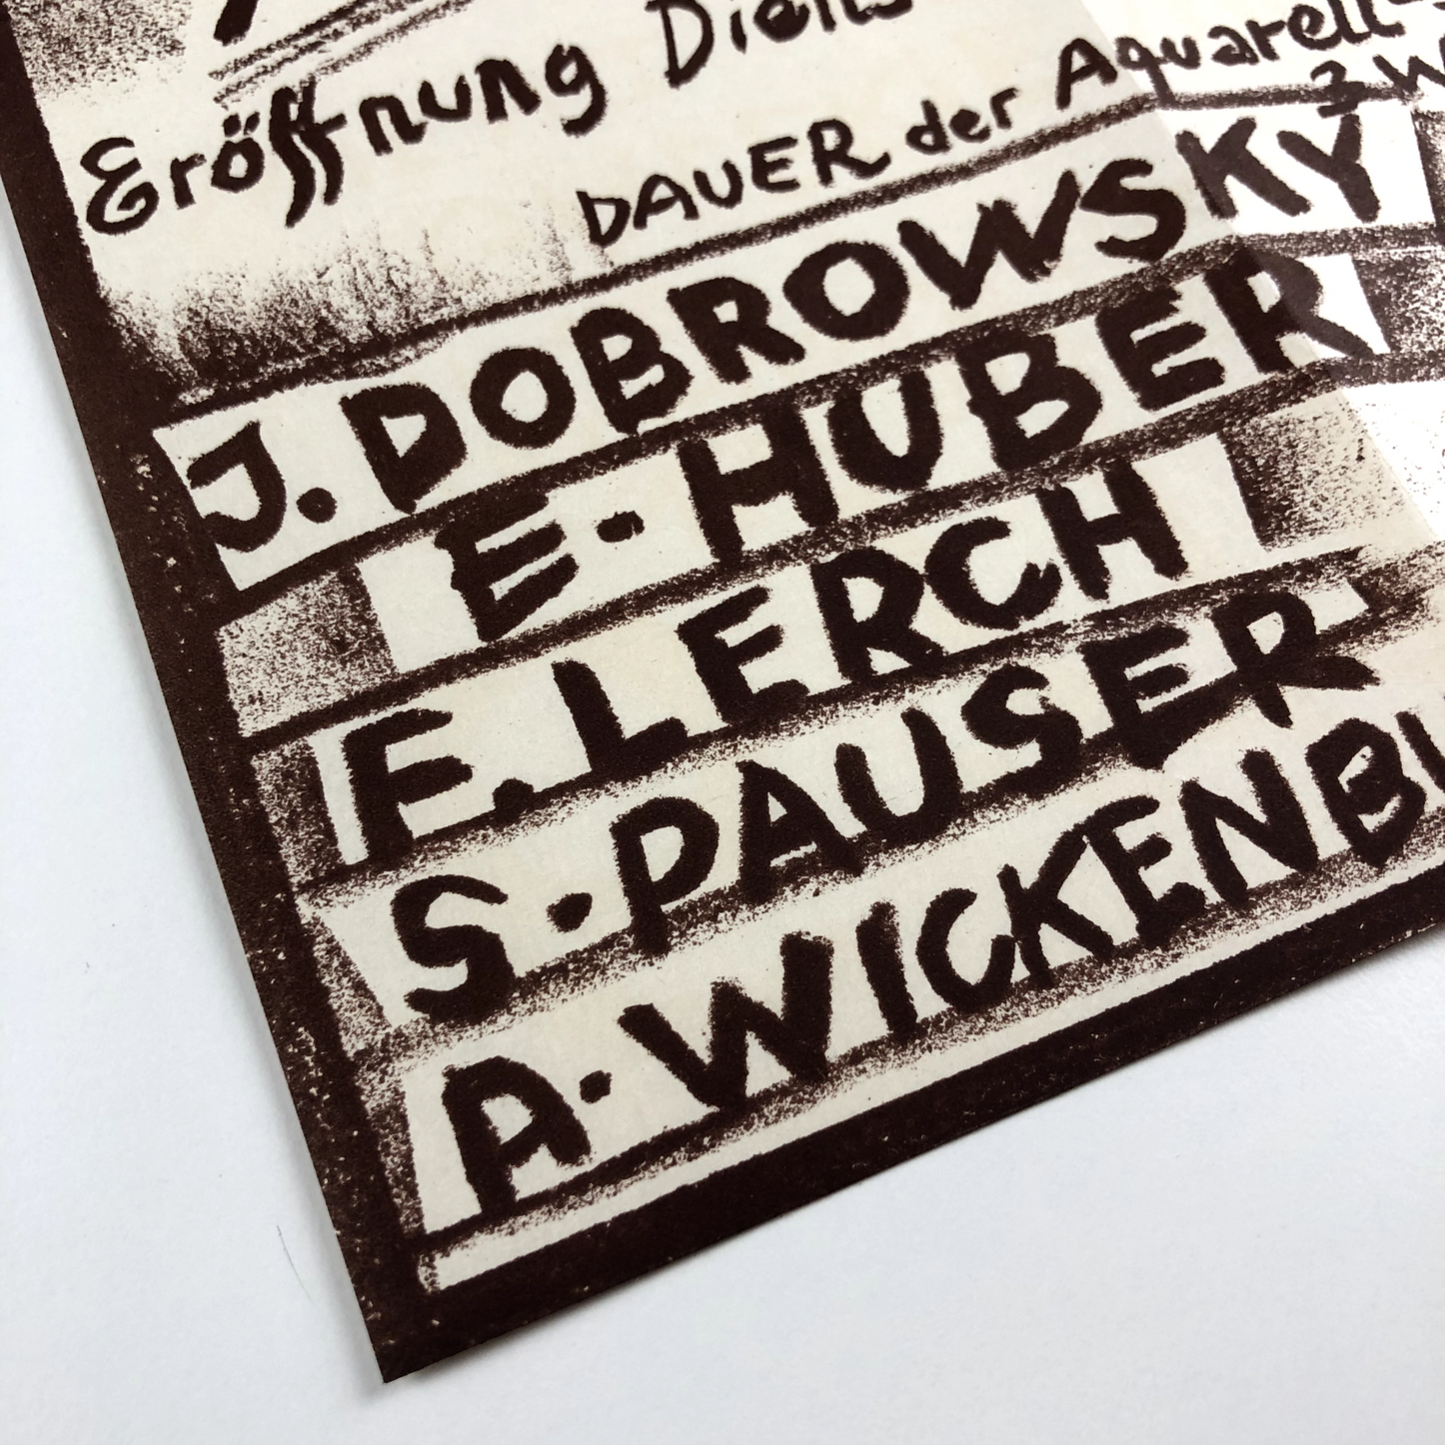 Eröffnung
DAUER der Aquarell
3 W
J. DOBROWSKY
E. HUBER
F. LERCH
S. PAUSER
A. WICKENBU